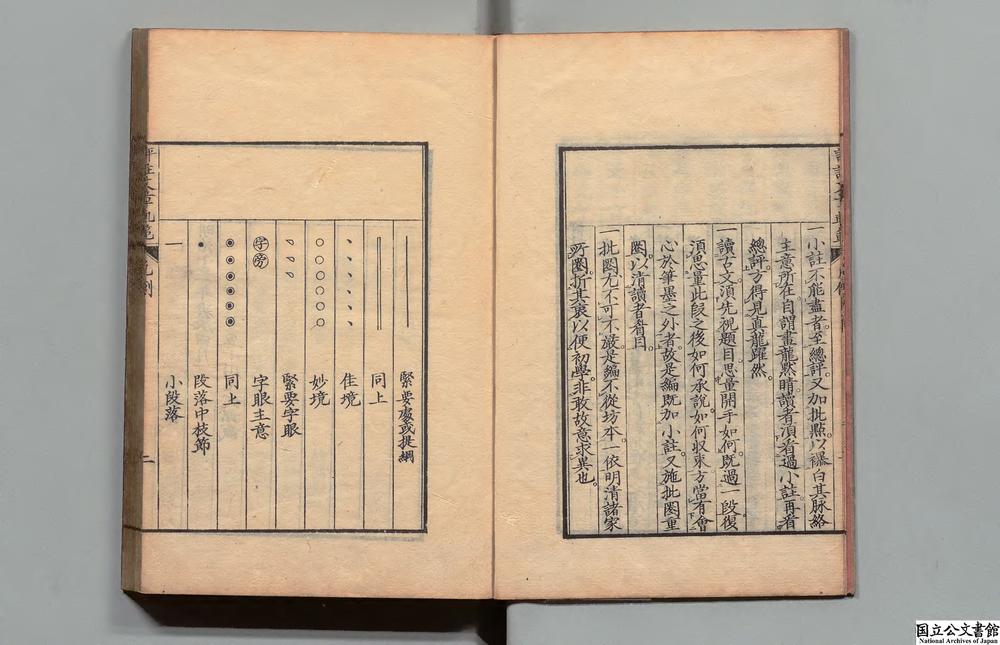 一小註不能盡者。至總評。又加批點。以曝白其脉絡
主意所在。自謂畫龍點睛。讀者須看過小註。再看
總評。方得見真龍躍然。
一讀古文。須先視題目。思量開手如何。既過一段。復
須思量此段之後如何承說。如何收束。方當有會
心於筆墨之外者。故是編既加小註。又施批圏重
圏。以清讀者眉目。
一批圏尤不可不嚴。是編不從坊本。一依明清諸家
所圏。折其衷。以便初學。非敢故意求異也。
凡例
緊要處或提綱
同上
佳境
妙境
緊要字眼
字旁 字眼主意
同上
段落中枝節
小段落
二
国立公文書館
National Archives of Japan